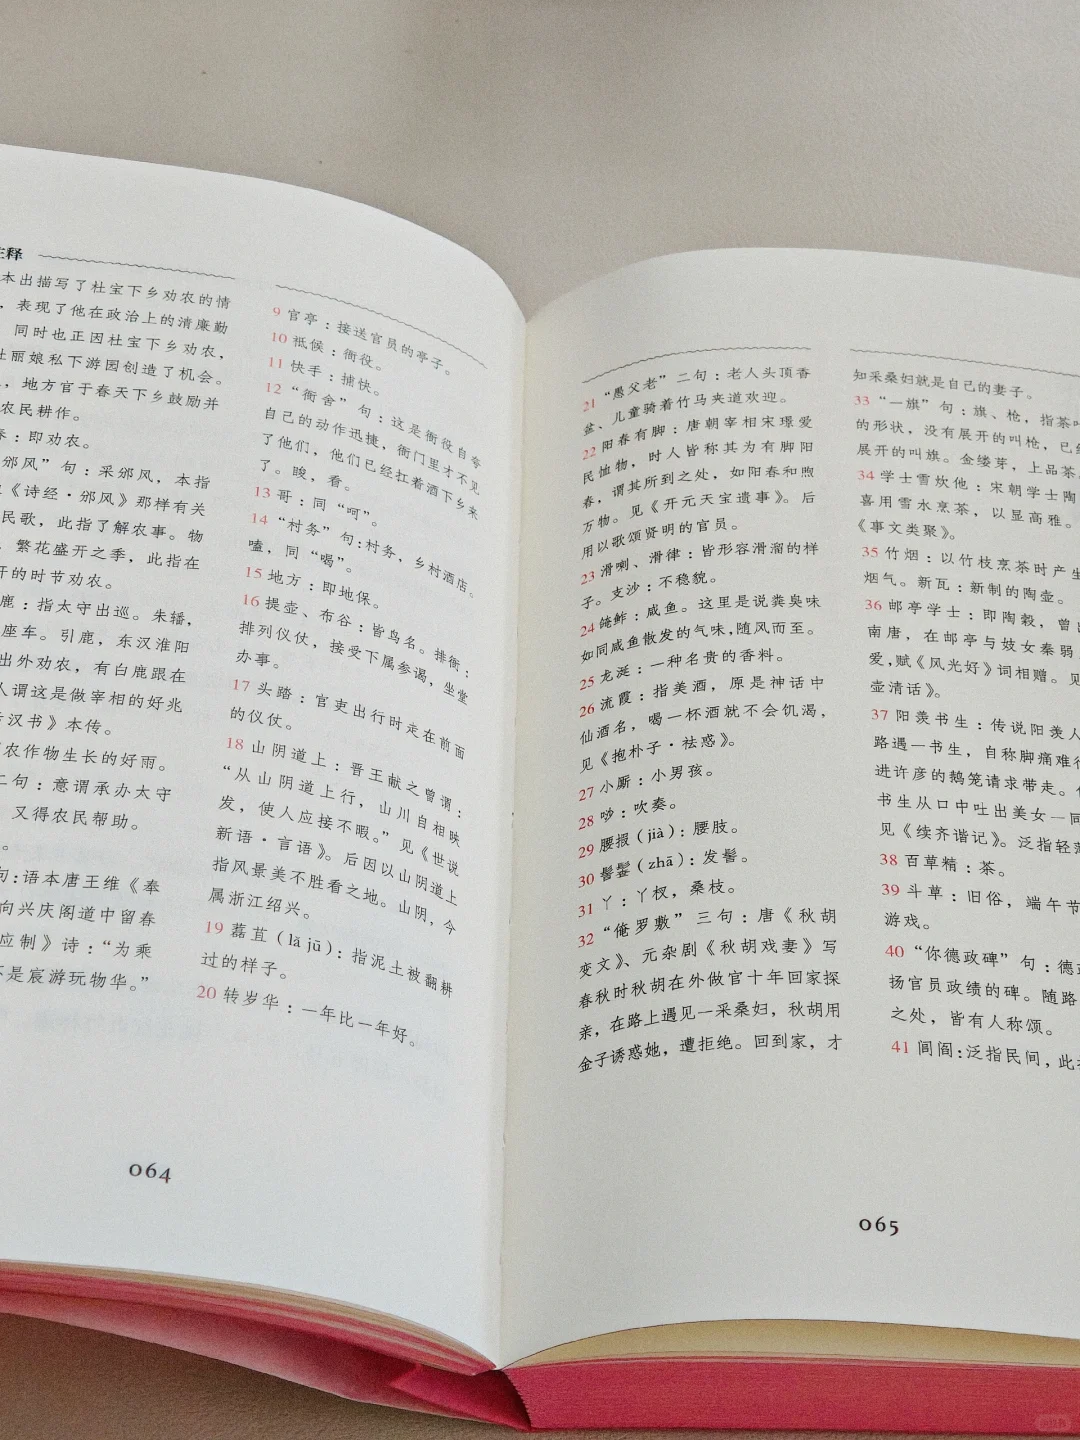 注释
本出描写了杜宝下乡劝农的情
，表现了他在政治上的清廉勤
同时也正因杜宝下乡劝农，
杜丽娘私下游园创造了机会。
，地方官于春天下乡鼓励并
农民耕作。
：即劝农。
邠风”句：采邠风，本指
《诗经·邠风》那样有关
民歌，此指了解农事。物
，繁花盛开之季，此指在
开的时节劝农。
鹿：指太守出巡。朱轓，
座车。引鹿，东汉淮阳
出外劝农，有白鹿跟在
人谓这是做宰相的好兆
汉书》本传。
农作物生长的好雨。
二句：意谓承办太守
，又得农民帮助。
。
句：语本唐王维《奉
向兴庆阁道中留春
应制》诗：“为乘
不是宸游玩物华。”
9 官亭：接送官员的亭子。
10 祗候：衙役。
11 快手：捕快。
12 “衙舍”句：这是衙役自夸
自己的动作迅捷，衙门里才不见
了他们，他们已经扛着酒下乡来
了。睃，看。
13 哥：同“呵”。
14 “村务”句：村务，乡村酒店。
嗑，同“喝”。
15 地方：即地保。
16 提壶、布谷：皆鸟名。排衙：
排列仪仗，接受下属参谒，坐堂
办事。
17 头踏：官吏出行时走在前面
的仪仗。
18 山阴道上：晋王献之曾谓：
“从山阴道上行，山川自相映
发，使人应接不暇。”见《世说
新语·言语》。后因以山阴道上
指风景美不胜看之地。山阴，今
属浙江绍兴。
19 藞苴（lǎ jū）：指泥土被翻耕
过的样子。
20 转岁华：一年比一年好。
064
21 “愚父老”二句：老人头顶香
盆、儿童骑着竹马夹道欢迎。
22 阳春有脚：唐朝宰相宋璟爱
民恤物，时人皆称其为有脚阳
春，谓其所到之处，如阳春和煦
万物。见《开元天宝遗事》。后
用以歌颂贤明的官员。
23 滑喇、滑律：皆形容滑溜的样
子。支沙：不稳貌。
24 腌鲊：咸鱼。这里是说粪臭味
如同咸鱼散发的气味，随风而至。
25 龙涎：一种名贵的香料。
26 流霞：指美酒，原是神话中
仙酒名，喝一杯酒就不会饥渴，
见《抱朴子·祛惑》。
27 小厮：小男孩。
28 吵：吹奏。
29 腰报（jià）：腰肢。
30 髻鬟（zhā）：发髻。
31 丫：丫杈，桑枝。
32 “俺罗敷”三句：唐《秋胡
变文》、元杂剧《秋胡戏妻》写
春秋时秋胡在外做官十年回家探
亲，在路上遇见一采桑妇，秋胡用
金子诱惑她，遭拒绝。回到家，才
知采桑妇就是自己的妻子。
33 “一旗”句：旗、枪，指茶叶
的形状，没有展开的叫枪，已经
展开的叫旗。金缕芽，上品茶。
34 学士雪炊他：宋朝学士陶
喜用雪水烹茶，以显高雅。
《事文类聚》。
35 竹烟：以竹枝烹茶时产生
烟气。新瓦：新制的陶壶。
36 邮亭学士：即陶穀，曾出
南唐，在邮亭与妓女秦弱
爱，赋《风光好》词相赠。见
壶清话》。
37 阳羡书生：传说阳羡人
路遇一书生，自称脚痛难行
进许彦的鹅笼请求带走。
书生从口中吐出美女一同
见《续齐谐记》。泛指轻薄
38 百草精：茶。
39 斗草：旧俗，端午节
游戏。
40 “你德政碑”句：德政
扬官员政绩的碑。随路
之处，皆有人称颂。
41 闾阎：泛指民间，此
065